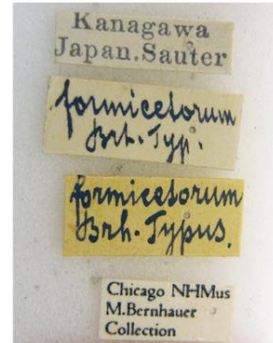 Kanagawa
Japan.Sauter
formicetorum
Brh. Typ.
formicetorum
Brh. Typus.
Chicago NHMus
M.Bernhauer
Collection